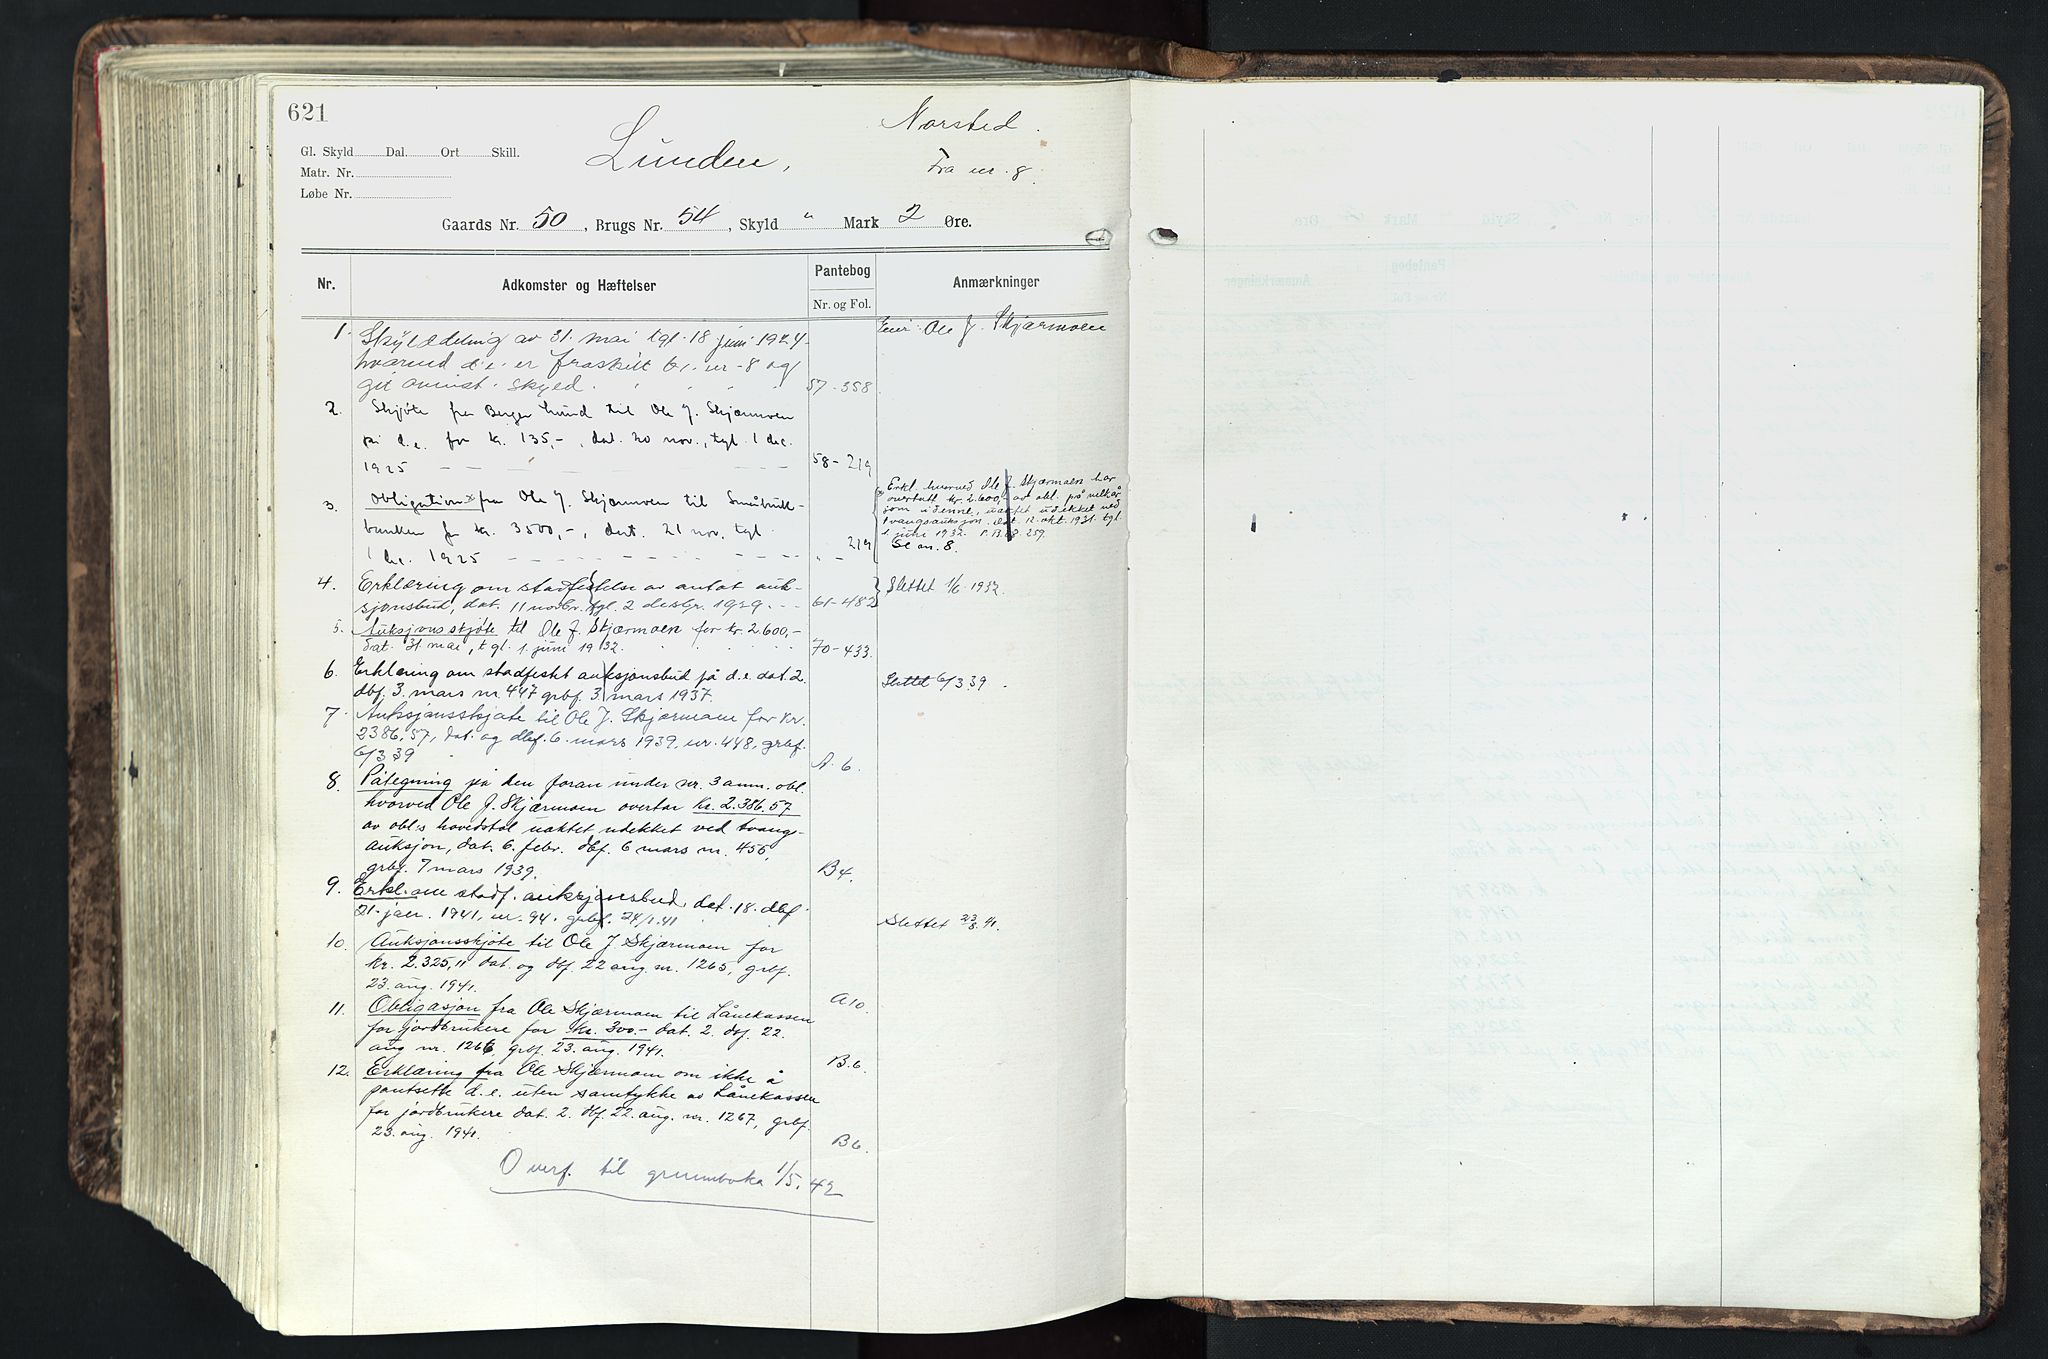 621
Norsted.
Lunden,
Fra nr. 8.
Gl. Skyld Dal. Ort Skill.
Matr. Nr.
Løbe Nr.
Gaards Nr. 50, Brugs Nr. 54, Skyld " Mark 2 Øre.
Nr. Adkomster og Hæftelser Pantebog Anmærkninger
Nr. og Fol.
1. Skylddeling av 31. mai tgl. 18 juni 1924
hvorved d.e. er fraskilt b. nr. 8 og
git ovenst. skyld. 57-358
Eier: Ole J. Skjærmoen
2. Skjøte fra Berger Lund til Ole J. Skjærmoen
på d.e. for kr. 135,-, dat. 20 nov., tgl. 1 dec.
1925 58-219
3. Obligation fra Ole J. Skjærmoen til Småbruk-
banken for kr. 3500,-, dat. 21 nov. tgl.
1 dec. 1925 " - 219
Erkl. hvorved Ole J. Skjærmoen har
overtatt kr. 2.600,- av obl. på vilkår
som i denne, uaktet udekket ved
tvangsauksjon. dat. 12. okt. 1931. tgl.
1. juni 1932. P.B. 68. 259.
Se nr. 8.
4. Erklæring om stadfestelse av antat auk-
sjonsbud, dat. 11 novbr. tgl. 2 desbr. 1929. 61-482
Slettet 1/6. 1932.
5. Auksjonsskjøte til Ole J. Skjærmoen for kr. 2.600,-
dat. 31 mai, tgl. 1. juni 1932. 70-433.
6. Erklæring om stadfestet auksjonsbud på d.e. dat. 2.
dbf. 3. mars nr. 447 grbf. 3. mars 1937.
Slettet 6/3 39.
7. Auksjonsskjøte til Ole J. Skjærmoen for kr.
2386,57, dat. og dbf. 6. mars 1939, nr. 448, grbf.
6/3 39 A. 6.
8. Påtegning på den foran under nr. 3 anm. obl.
hvorved Ole J. Skjærmoen overtar kr. 2.386.57
av obl:s hovedstol uaktet udekket ved tvangs-
auksjon, dat. 6. febr. dbf. 6 mars nr. 455,
grbf. 7 mars 1939. B4.
9. Erkl. om stadf. auksjonsbud, dat. 18. dbf.
21. jan. 1941, nr. 94. grbf. 24/1.41
Slettet 23/8. 41.
10. Auksjonsskjøte til Ole J. Skjærmoen for
kr. 2.325,11 dat. og dbf. 22 aug. nr. 1265, grbf.
23. aug. 1941. A10.
11. Obligasjon fra Ole Skjærmoen til Lånekassen
for jordbrukere for kr. 300.- dat. 2. dbf. 22.
aug nr. 1266, grbf. 23. aug. 1941. B.6.
12. Erklæring fra Ole Skjærmoen om ikke å
pantsette d.e. uten samtykke av Lånekassen
for jordbrukere dat. 2. dbf. 22. aug. nr. 1267, grbf.
23. aug. 1941. B6.
Overf. til grunnboka 1/5. 42